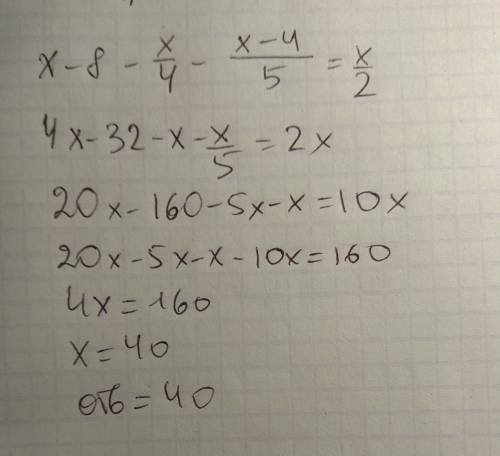 x - 8 - x/4 - (x-4)/5 = x/2
4x - 32 - x - x/5 = 2x
20x - 160 - 5x - x = 10x
20x - 5x - x - 10x = 160
4x = 160
x = 40
отв = 40